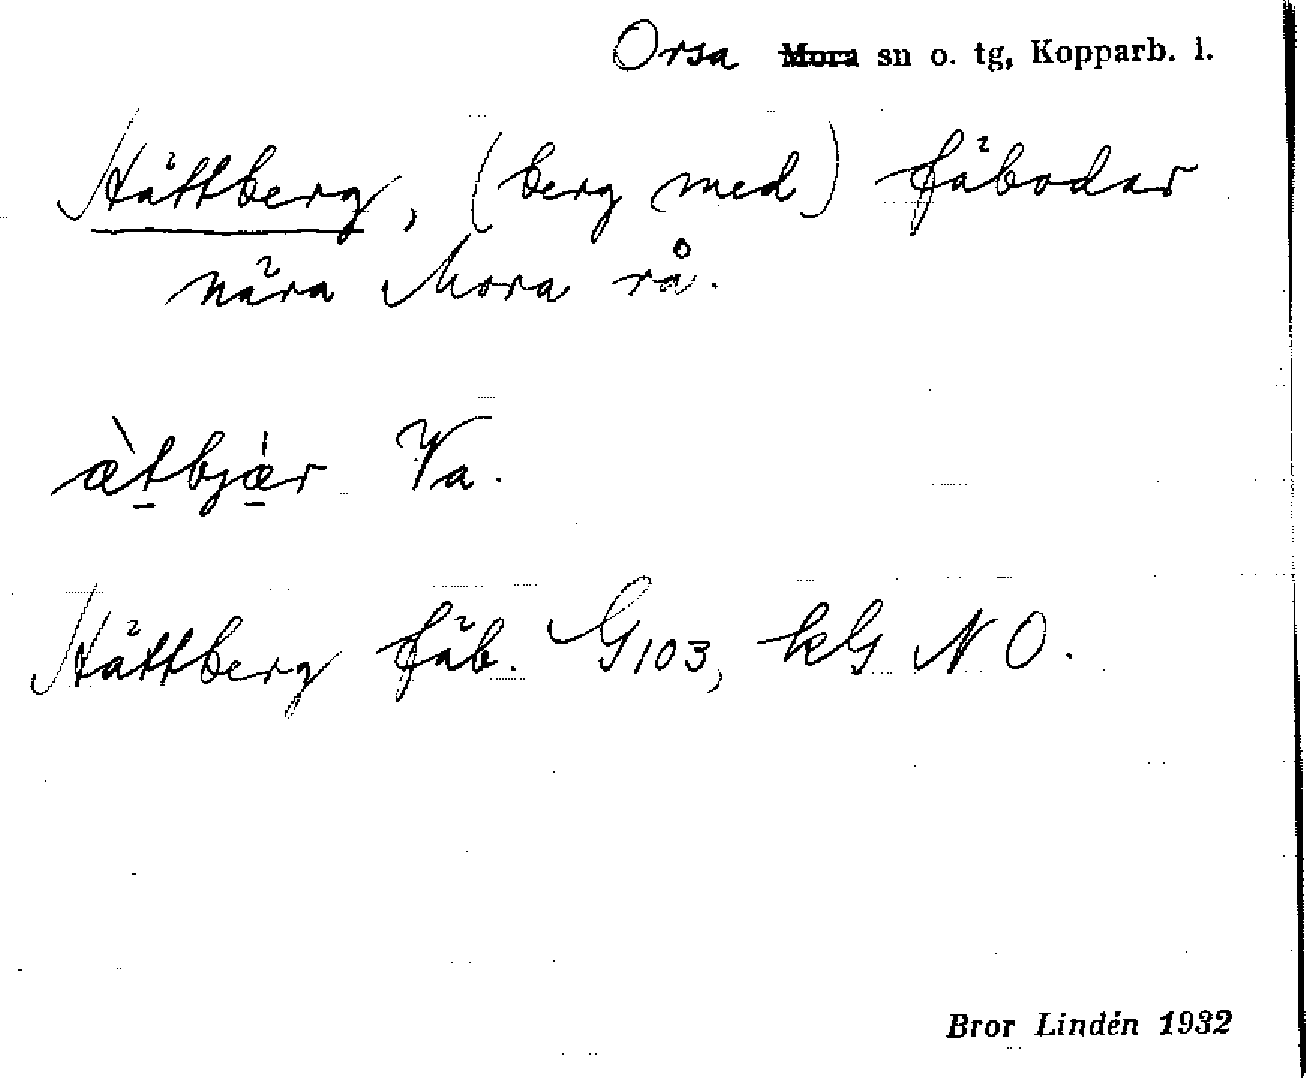 Orsa Mora sn o. tg, Kopparb. l.
Hättberg, (berg med) fäbodar
nära Mora rå.
æ̀tbjæ̀r Va.
Hättberg fäb. G103, kG NO.
Bror Lindén 1932